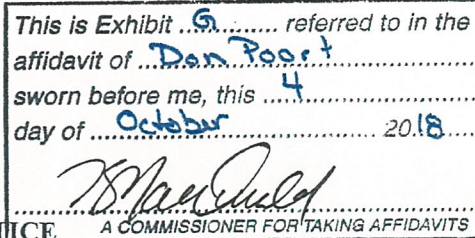 This is Exhibit ..G......... referred to in the
affidavit of ...Don Poort................
sworn before me, this ....4....................
day of .......October....................... 20.18.....
A COMMISSIONER FOR TAKING AFFIDAVITS